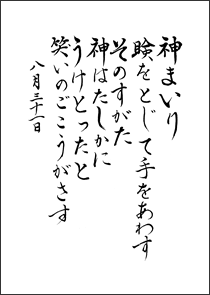 神まいり
瞼をとじて手をあわす
そのすがた
神はたしかに
うけとったと
笑いのごこうがさす
八月三十一日